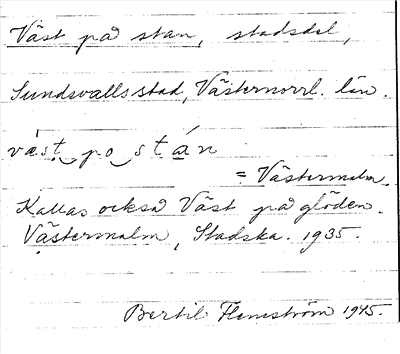 Väst på stan, stadsdel,
Sundsvalls stad, Västernorrl. län.
väst po stán
= Västermalm.
Kallas också Väst på glöden.
Västermalm, Stadska. 1935.
Bertil Flemström 1945.